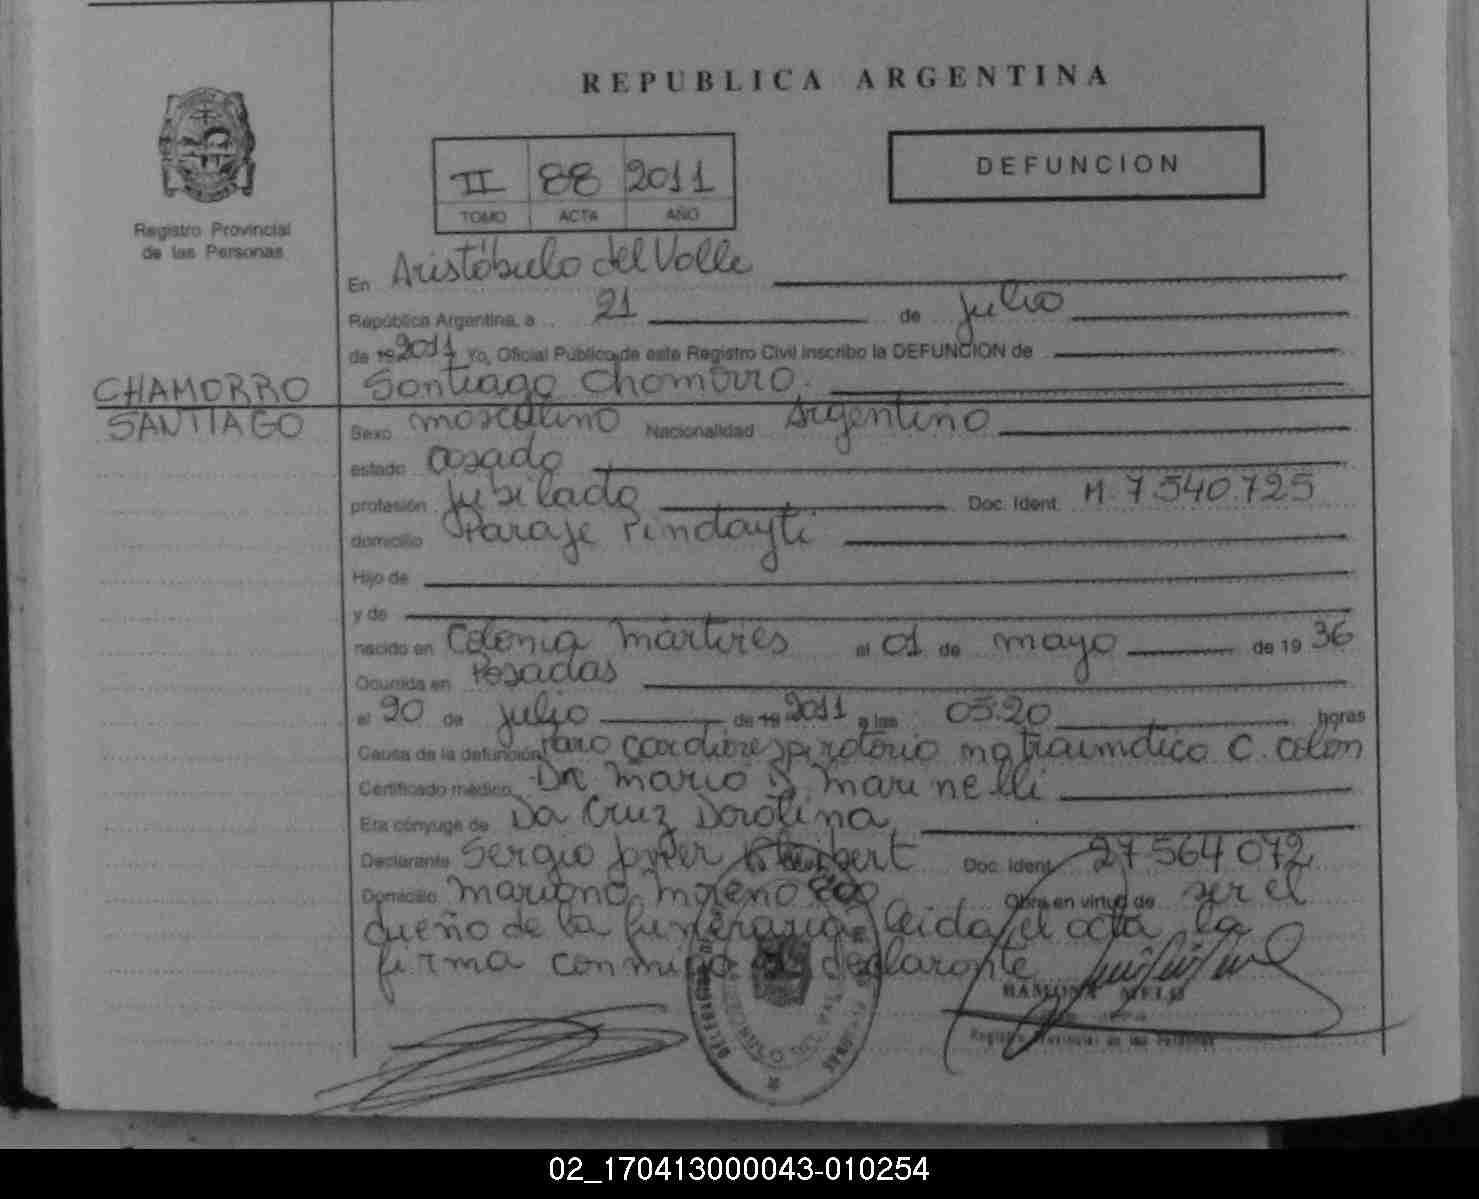 REPUBLICA ARGENTINA
DEFUNCION
II 88 2011
TOMO ACTA AÑO
Registro Provincial
de las Personas
En Aristóbulo del Valle
República Argentina, a 21 de julio
de 19 2011 Yo, Oficial Público de este Registro Civil inscribo la DEFUNCION de
CHAMORRO
SANTIAGO
Santiago Chamorro.
Sexo masculino Nacionalidad Argentino
estado casado
profesión Jubilado Doc. Ident. M. 7.540.725
domicilio Paraje Pindayti
Hijo de
y de
nacido en Colonia Mártires el 01 de mayo de 19 36
Ocurrida en Posadas
el 20 de julio de 19 2011 a las 03.20 horas
Causa de la defunción Paro cardiorespiratorio no traumático C. colon
Certificado médico Dr Mario S. Marinelli
Era cónyuge de Da Cruz Dorotina
Declarante Sergio Javier Doc. Ident. 27564072
Domicilio Mariano Moreno 800 Obra en virtud de ser el
dueño de la funeraria leida el acta la
firma conmigo el declarante
RAMONA MELO
Registro Provincial de las Personas
02_170413000043-010254